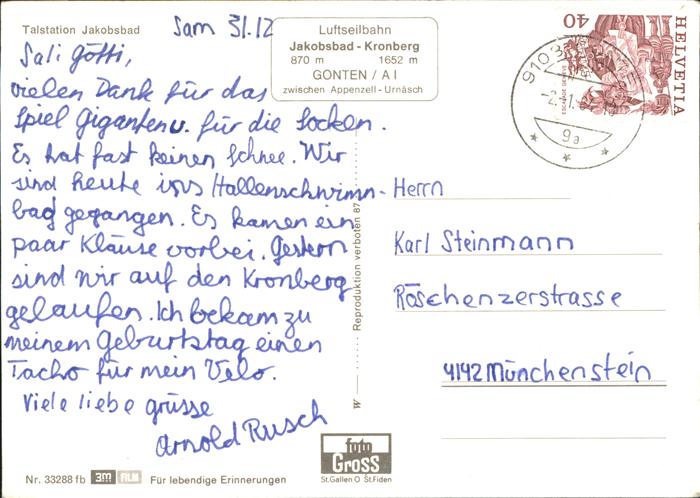 Talstation Jakobsbad
Sam 31.12
Luftseilbahn
Jakobsbad - Kronberg
870 m 1652 m
GONTEN / A I
zwischen Appenzell - Urnäsch
40
HELVETIA
ESCALADE GENÈVE
9108
-2.-1.
9a
Sali Götti,
vielen Dank für das
Spiel Giganten u. für die Socken.
Es hat fast keinen Schnee. Wir
sind heute ins Hallenschwimm-
bad gegangen. Es kamen ein
paar Kläuse vorbei. Gestern
sind wir auf den Kronberg
gelaufen. Ich bekam zu
meinem Geburtstag einen
Tacho für mein Velo.
Viele liebe grüsse
Arnold Rusch
Herrn
Karl Steinmann
Röschenzerstrasse
4142 Münchenstein
W Reproduktion verboten 87
foto
Gross
St.Gallen O St.Fiden
Nr. 33288 fb 3M FILM Für lebendige Erinnerungen